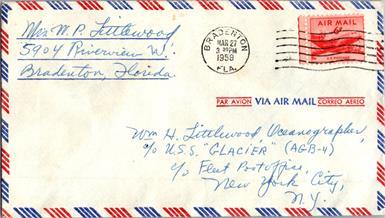 Mrs. W. P. Littlewood
5904 Riverview
Bradenton, Florida
BRADENTON
MAR 27
PM
1959
FLA.
AIR MAIL
6¢
PAR AVION VIA AIR MAIL CORREO AEREO
Wm H. Littlewood, Oceanographer,
c/o U.S.S. "GLACIER" (AGB-4)
c/o Fleet Post office,
New York City,
N.Y.